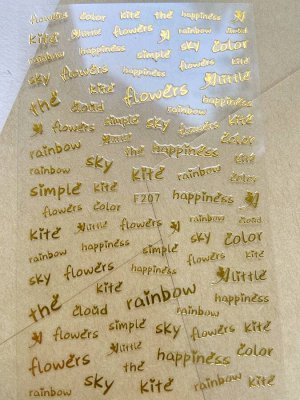 flowers color kite the happiness
kite little flowers rainbow cloud
rainbow happiness simple sky color
sky color kite happiness flowers little
the cloud flowers happiness rainbow
flowers simple sky flowers kite
rainbow little the happiness color
rainbow sky kite rainbow kite color
simple kite F207 happiness
flowers color kite
kite little flowers rainbow cloud
rainbow happiness simple sky color
sky flowers kite happiness flowers kite
little
the cloud rainbow happiness
rainbow
flowers simple sky flowers kite
flowers little the happiness color
rainbow sky kite rainbow kite